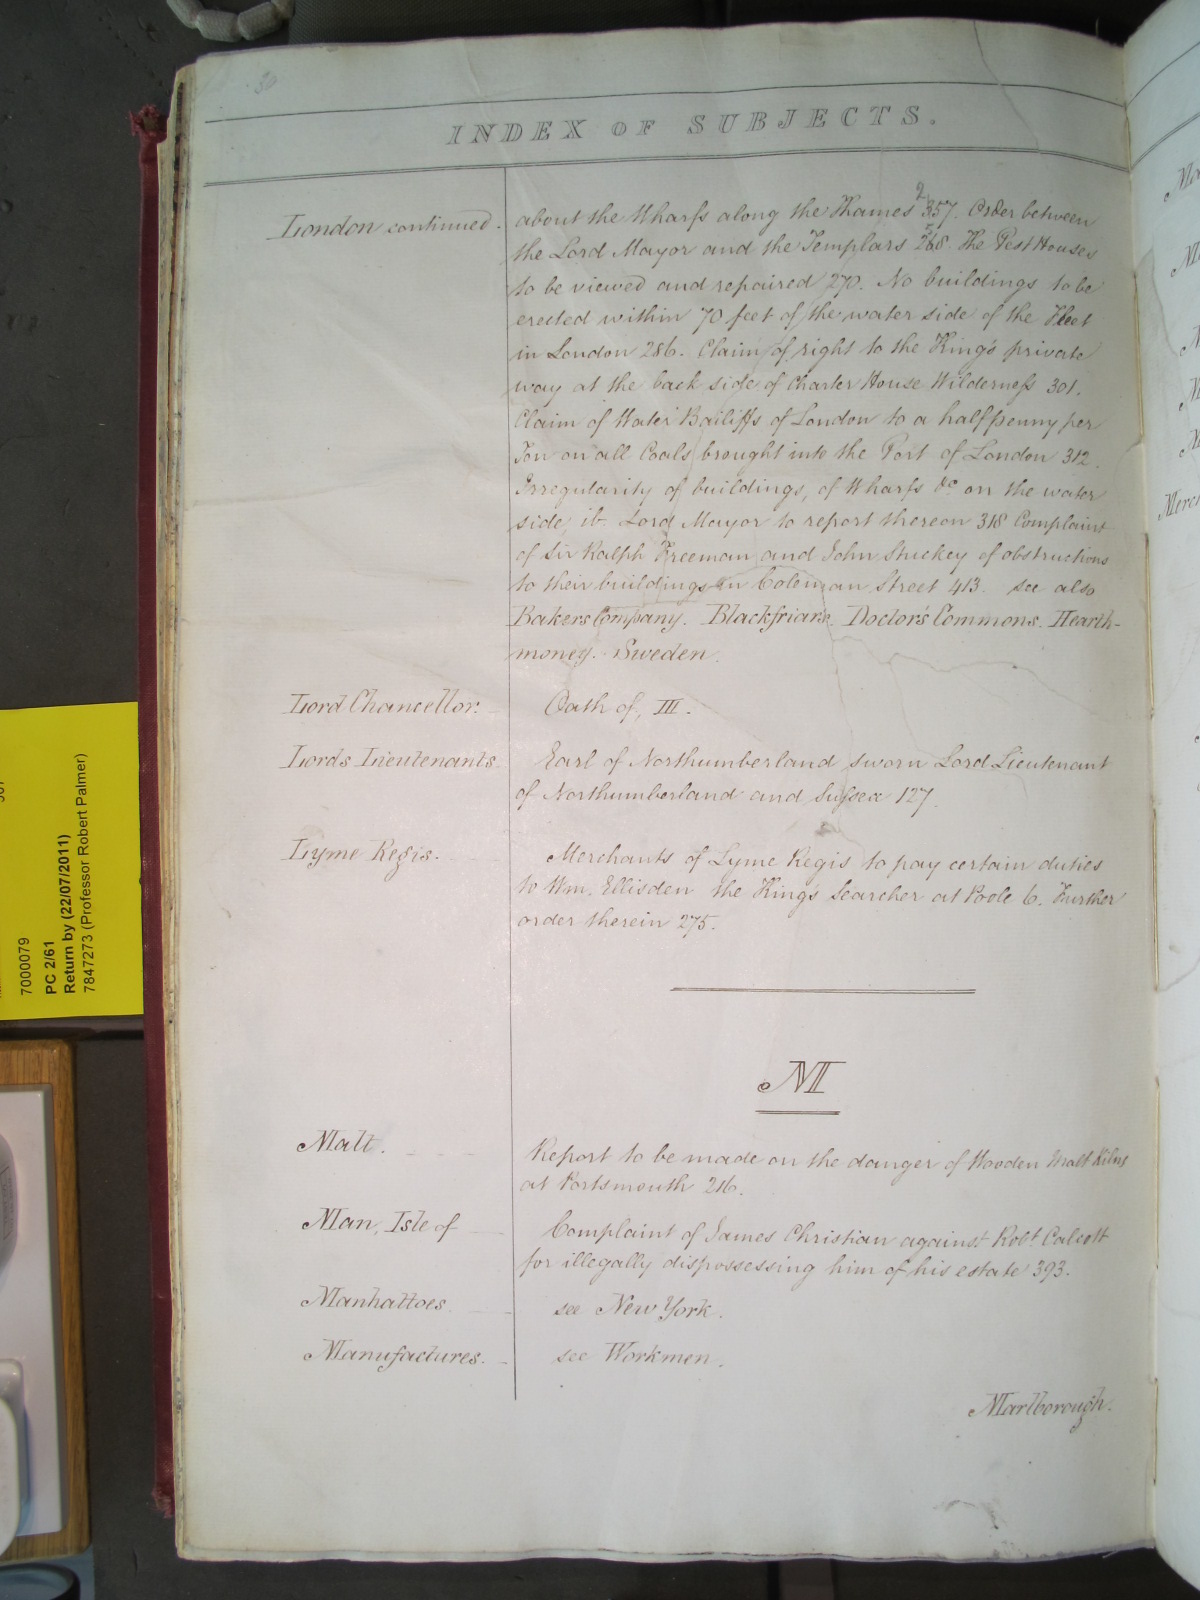 30
INDEX OF SUBJECTS.
London continued. about the Wharfs along the Thames 257. Order between
the Lord Mayor and the Templars 268. The Pest Houses
to be viewed and repaired 270. No buildings to be
erected within 70 feet of the water side of the Fleet
in London 286. Claim of right to the King's private
way at the back side of Charter House Wilderness 301.
Claim of Water Bailiffs of London to a halfpenny per
Ton on all Coals brought into the Port of London 312.
Irregularity of buildings, of Wharfs &c on the water
side, ib. Lord Mayor to report thereon 318 Complaint
of Sir Ralph Freeman and John Stuckey of obstructions
to their buildings in Coleman Street 413. see also
Bakers Company. Blackfriars. Doctor's Commons. Hearth-
money. Sweden.
Lord Chancellor. Oath of, III.
Lords Lieutenants. Earl of Northumberland sworn Lord Lieutenant
of Northumberland and Sussex 127.
Lyme Regis. Merchants of Lyme Regis to pay certain duties
to Wm. Ellisden the King's Searcher at Poole 6. Further
order therein 275.
M
Malt. Report to be made on the danger of Wooden Malt Kilns
at Portsmouth 216.
Man, Isle of Complaint of James Christian against Robt. Calcott
for illegally dispossessing him of his estate 393.
Manhattoes. see New York.
Manufactures. see Workmen.
Marlborough.
7000079
PC 2/61
Return by (22/07/2011)
7847273 (Professor Robert Palmer)